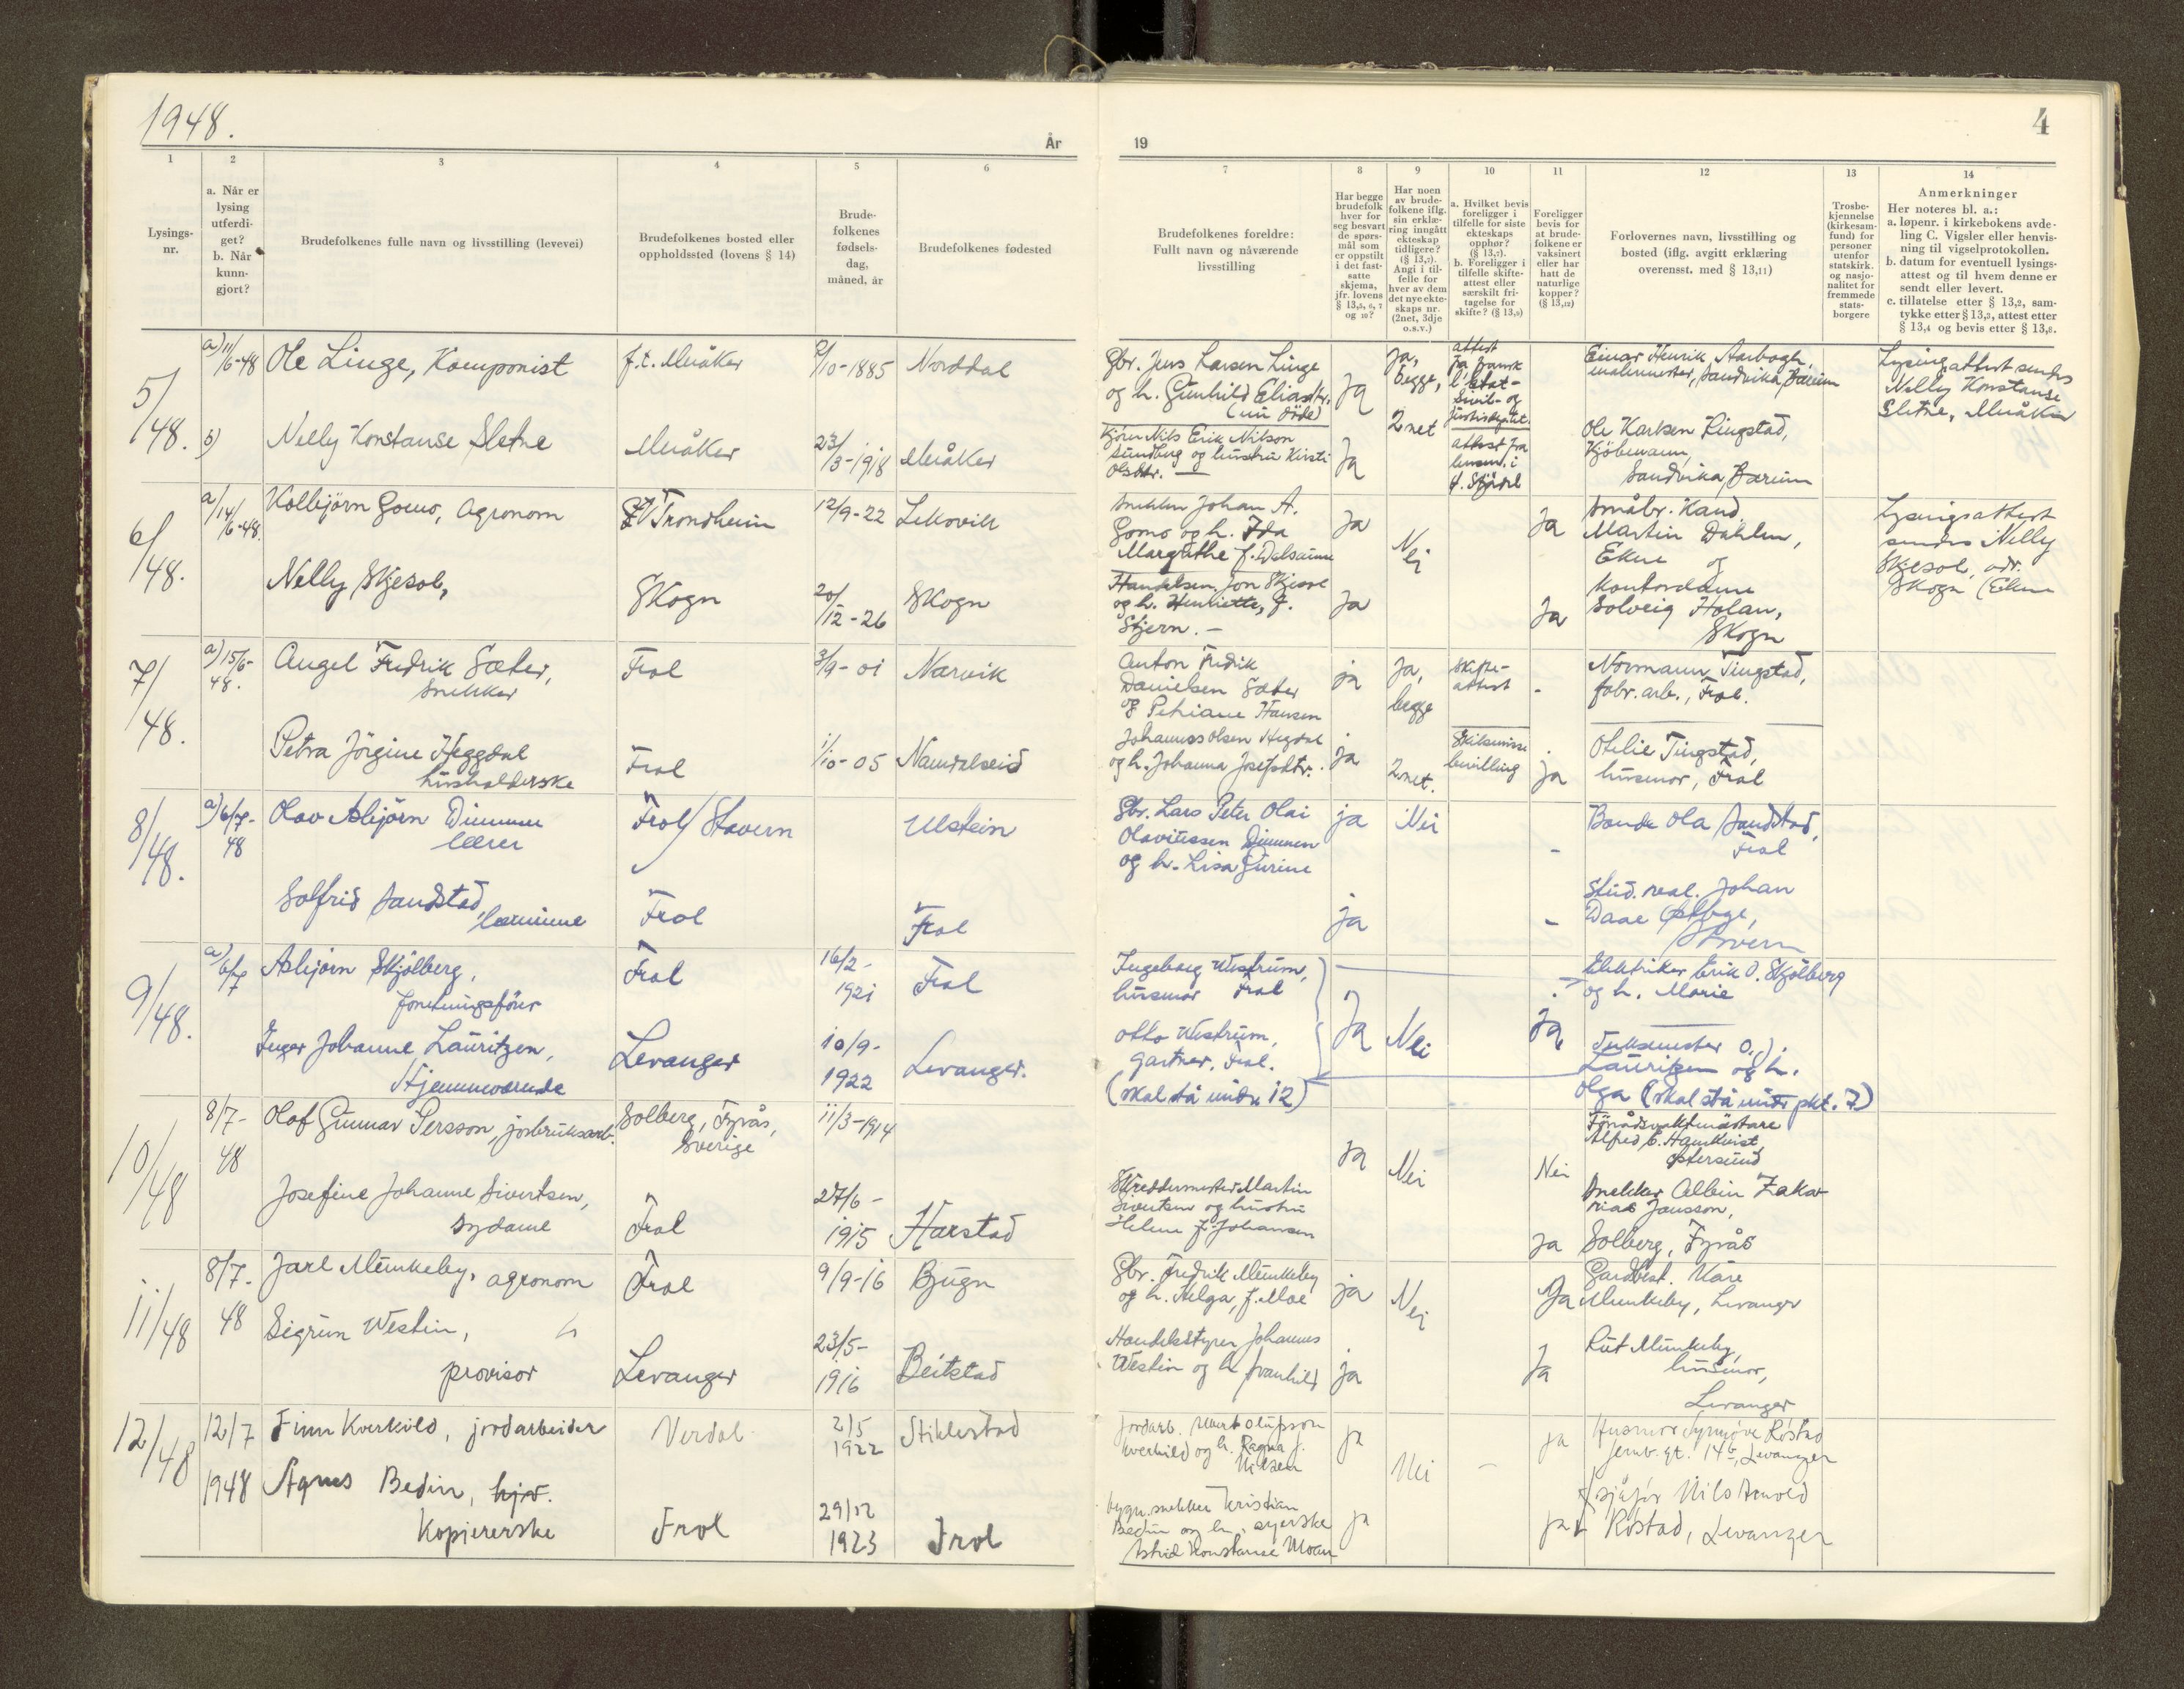 1948.
År
19
4
1
2
3
4
5
6
7
8
9
10
11
12
13
14
Lysings-
nr.
a. Når er
lysing
utferdi-
get?
b. Når
kunn-
gjort?
Brudefolkenes fulle navn og livsstilling (levevei)
Brudefolkenes bosted eller
oppholdssted (lovens § 14)
Brude-
folkenes
fødsels-
dag,
måned, år
Brudefolkenes fødested
Brudefolkenes foreldre:
Fullt navn og nåværende
livsstilling
Har begge
brudefolk
hver for
seg besvart
de spørs-
mål som
er oppstilt
i det fast-
satte
skjema,
jfr. lovens
§ 13,5, 6, 7
og 10?
Har noen
av brude-
folkene iflg.
sin erklæ-
ring inngått
ekteskap
tidligere?
(§ 13,7).
Angi i til-
felle for
hver av dem
det nye ekte-
skaps nr.
(2net, 3dje
o.s.v.)
a. Hvilket bevis
foreligger i
tilfelle for siste
ekteskaps
opphør?
(§ 13,7).
b. Foreligger i
tilfelle skifte-
attest eller
særskilt fri-
tagelse for
skifte? (§ 13,9)
Foreligger
bevis for
at brude-
folkene er
vaksinert
eller har
hatt de
naturlige
kopper?
(§ 13,12)
Forlovernes navn, livsstilling og
bosted (iflg. avgitt erklæring
overensst. med § 13,11)
Trosbe-
kjennelse
(kirkesam-
fund) for
personer
utenfor
statskirk.
og nasjo-
nalitet for
fremmede
stats-
borgere
Anmerkninger
Her noteres bl. a.:
a. løpenr. i kirkebokens avde-
ling C. Vigsler eller henvis-
ning til vigselprotokollen.
b. datum for eventuell lysings-
attest og til hvem denne er
sendt eller levert.
c. tillatelse etter § 13,2, sam-
tykke etter § 13,3, attest etter
§ 13,4 og bevis etter § 13,8.
5/48.
a) 11/6-48
Ole Linge, Komponist
f.t. Muåker
/10-1885
Norddal
Gbr. Jens Larsen Linge
og h. Gunhild Eliasdtr.
(nu døde)
Ja
Ja,
begge,
2net
attest
fra
Sivil- og
Einar Henrik
malermester, Sandvika, Bærum
Lysingsattest sendes
Nelly Konstanse
Sletne, Muåker
b)
Nelly Konstanse Sletne
Muåker
23/3-1918
Muåker
Nils Erik Nilson
Sundberg og hustru Kirsti
Olsdtr. —
Ja
attest fra
lensm. i
Ole Karlsen Ringstad,
Kjöbmann,
Sandvika, Bærum
6/48.
a/14/6-48.
Kolbjörn Gomo, Agronom
Trondheim
12/9-22
Leksvik
Johan A.
Gomo og h. Ida
Margrethe f. Dalsaune
Ja
Nei
Ja
Småbr. Kand
Martin Dahlen,
Ekne
og
Lysingsattest
sendes Nelly
Skjesol, adr.
Skogn (Ekne
Nelly Skjesol,
Skogn
20/12-26
Skogn
Handelsm. Jon Skjesol
og h. Henriette, f.
Stjern. -
Ja
Ja
Kontordame
Solveig Holan,
Skogn
7/48.
a) 15/6-48.
Angel Fredrik Sæter,
Snekker
Frol
3/9-01
Narvik
Anton Fredrik
Danielsen Sæter
og Petriane Hansen
ja
Ja,
begge
Skifte-
attest
-
Normann Tingstad,
fabr. arb., Frol.
Petra Jörgine Heggdal
husholderske
Frol
1/10-05
Namdalseid
Johannes Olsen Hegdal
og h. Johanna Josefsdtr.
ja
2net.
Skilsmisse
bevilling
Ja
Otelie Tingstad,
husmor, Frol
8/48.
a) 6/7-48
Olav Asbjörn Dimmen
lærer
Frol/Stavern
Ulstein
Gbr. Lars Peter Olai
Olaviussen Dimmen
og h. Lisa Gurine
ja
Nei
-
Bonde Ola Sandstad,
Frol
Solfrid Sandstad,
lærerinne
Frol
Frol
ja
-
Stud. real. Johan
Daae Østbye,
Stavern
9/48.
a) 6/7
Asbjörn Skjölberg,
forretningsförer
Frol
16/2-
1921
Frol
Ingeborg Westrum,
husmor Frol
Elektriker Erik O. Skjölberg
og h. Marie
Inger Johanne Lauritzen,
Hjemmeværende
Levanger
10/9-
1922
Levanger.
Otto Westrum,
Gartner, Frol.
(skal stå under 12)
Ja
Nei
Ja
O.J.
Lauritzen og h.
Olga (skal stå under pkt. 7)
10/48
8/7-
48
Olof Gunnar Persson, jordbruksarb.
Solberg, Fyrås,
Sverige
11/3-1914
Ja
Nei
Nei
Förrådsvaktmästare
Alfred E. Hamkvist,
Östersund
Josefine Johanne Sivertsen,
Sydame
Frol
27/6-
1915
Harstad
Skreddermester Martin
Sivertsen og hustru
Helene f. Johansen
Ja
Snekker Albin Zaka-
rias Jansson,
Solberg, Fyrås
11/48
8/7-
48
Jarl Munkeby, agronom
Frol
9/9-16
Bjugn
Gbr. Fredrik Munkeby
og h. Helga, f. Moe
ja
Nei
Ja
Gardbest. Kåre
Munkeby, Levanger
Sigrun Westin,
provisor
Levanger
23/5-
1916
Beitstad
Handelsstyrer Johannes
Westin og h. Svanhild
ja
Ja
Rut Munkeby,
husmor,
Levanger
12/48
12/7
1948
Finn Kverkild, jordarbeider
Verdal
2/5
1922
Stiklestad
Jordarb. Olufson
Kverkild og h. Ragna f.
Nilsen
ja
Nei
-
ja
Husmor Synnøve Røstad
Jernb. gt. 14b, Levanger
Agnes Bedin, hjv.
Kopiererske
Frol
29/12
1923
Frol
bygn. snekker Kristian
Bedin og h., syerske
Astrid Konstanse Moan
ja
ja
sjåfør Nils Arnold
Røstad, Levanger